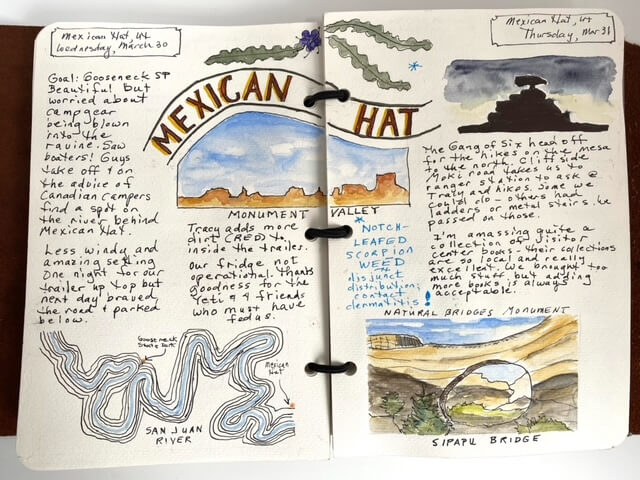 Mexican Hat, UT
Wednesday, March 30
Goal: Gooseneck SP
Beautiful but
worried about
camp gear
being blown
into the
ravine. Saw
boaters! Guys
take off & on
the advice of
Canadian campers
find a spot on
the river behind
Mexican Hat.
Less windy and
amazing setting
One night for our
trailer up top but
next day braved
the road & parked
below.
MEXICAN HAT
MONUMENT VALLEY
Tracy adds more
dirt (RED) to
inside the trailer.
Our fridge not
operational. Thanks
goodness for the
Yeti & 4 friends
who must have
fed us.
Gooseneck
State Park
Mexican
Hat
SAN JUAN
RIVER
Mexican Hat, UT
Thursday, Mar 31
*
The Gang of Six head off
for the hikes on the mesa
to the north. Cliffside
Moki road takes us to
ranger station to ask @
Tracy and hikes. Some we
could do - others had
ladders or metal stairs. We
passed on those.
*
NOTCH-
LEAFED
SCORPION
WEED
disjunct
distribution;
contact
dermatitis!
I'm amassing quite a
collection of visitor
center books - their collections
are so local and really
excellent. We brought too
much stuff but adding
more books is always
acceptable.
NATURAL BRIDGES MONUMENT
SIPAPU BRIDGE